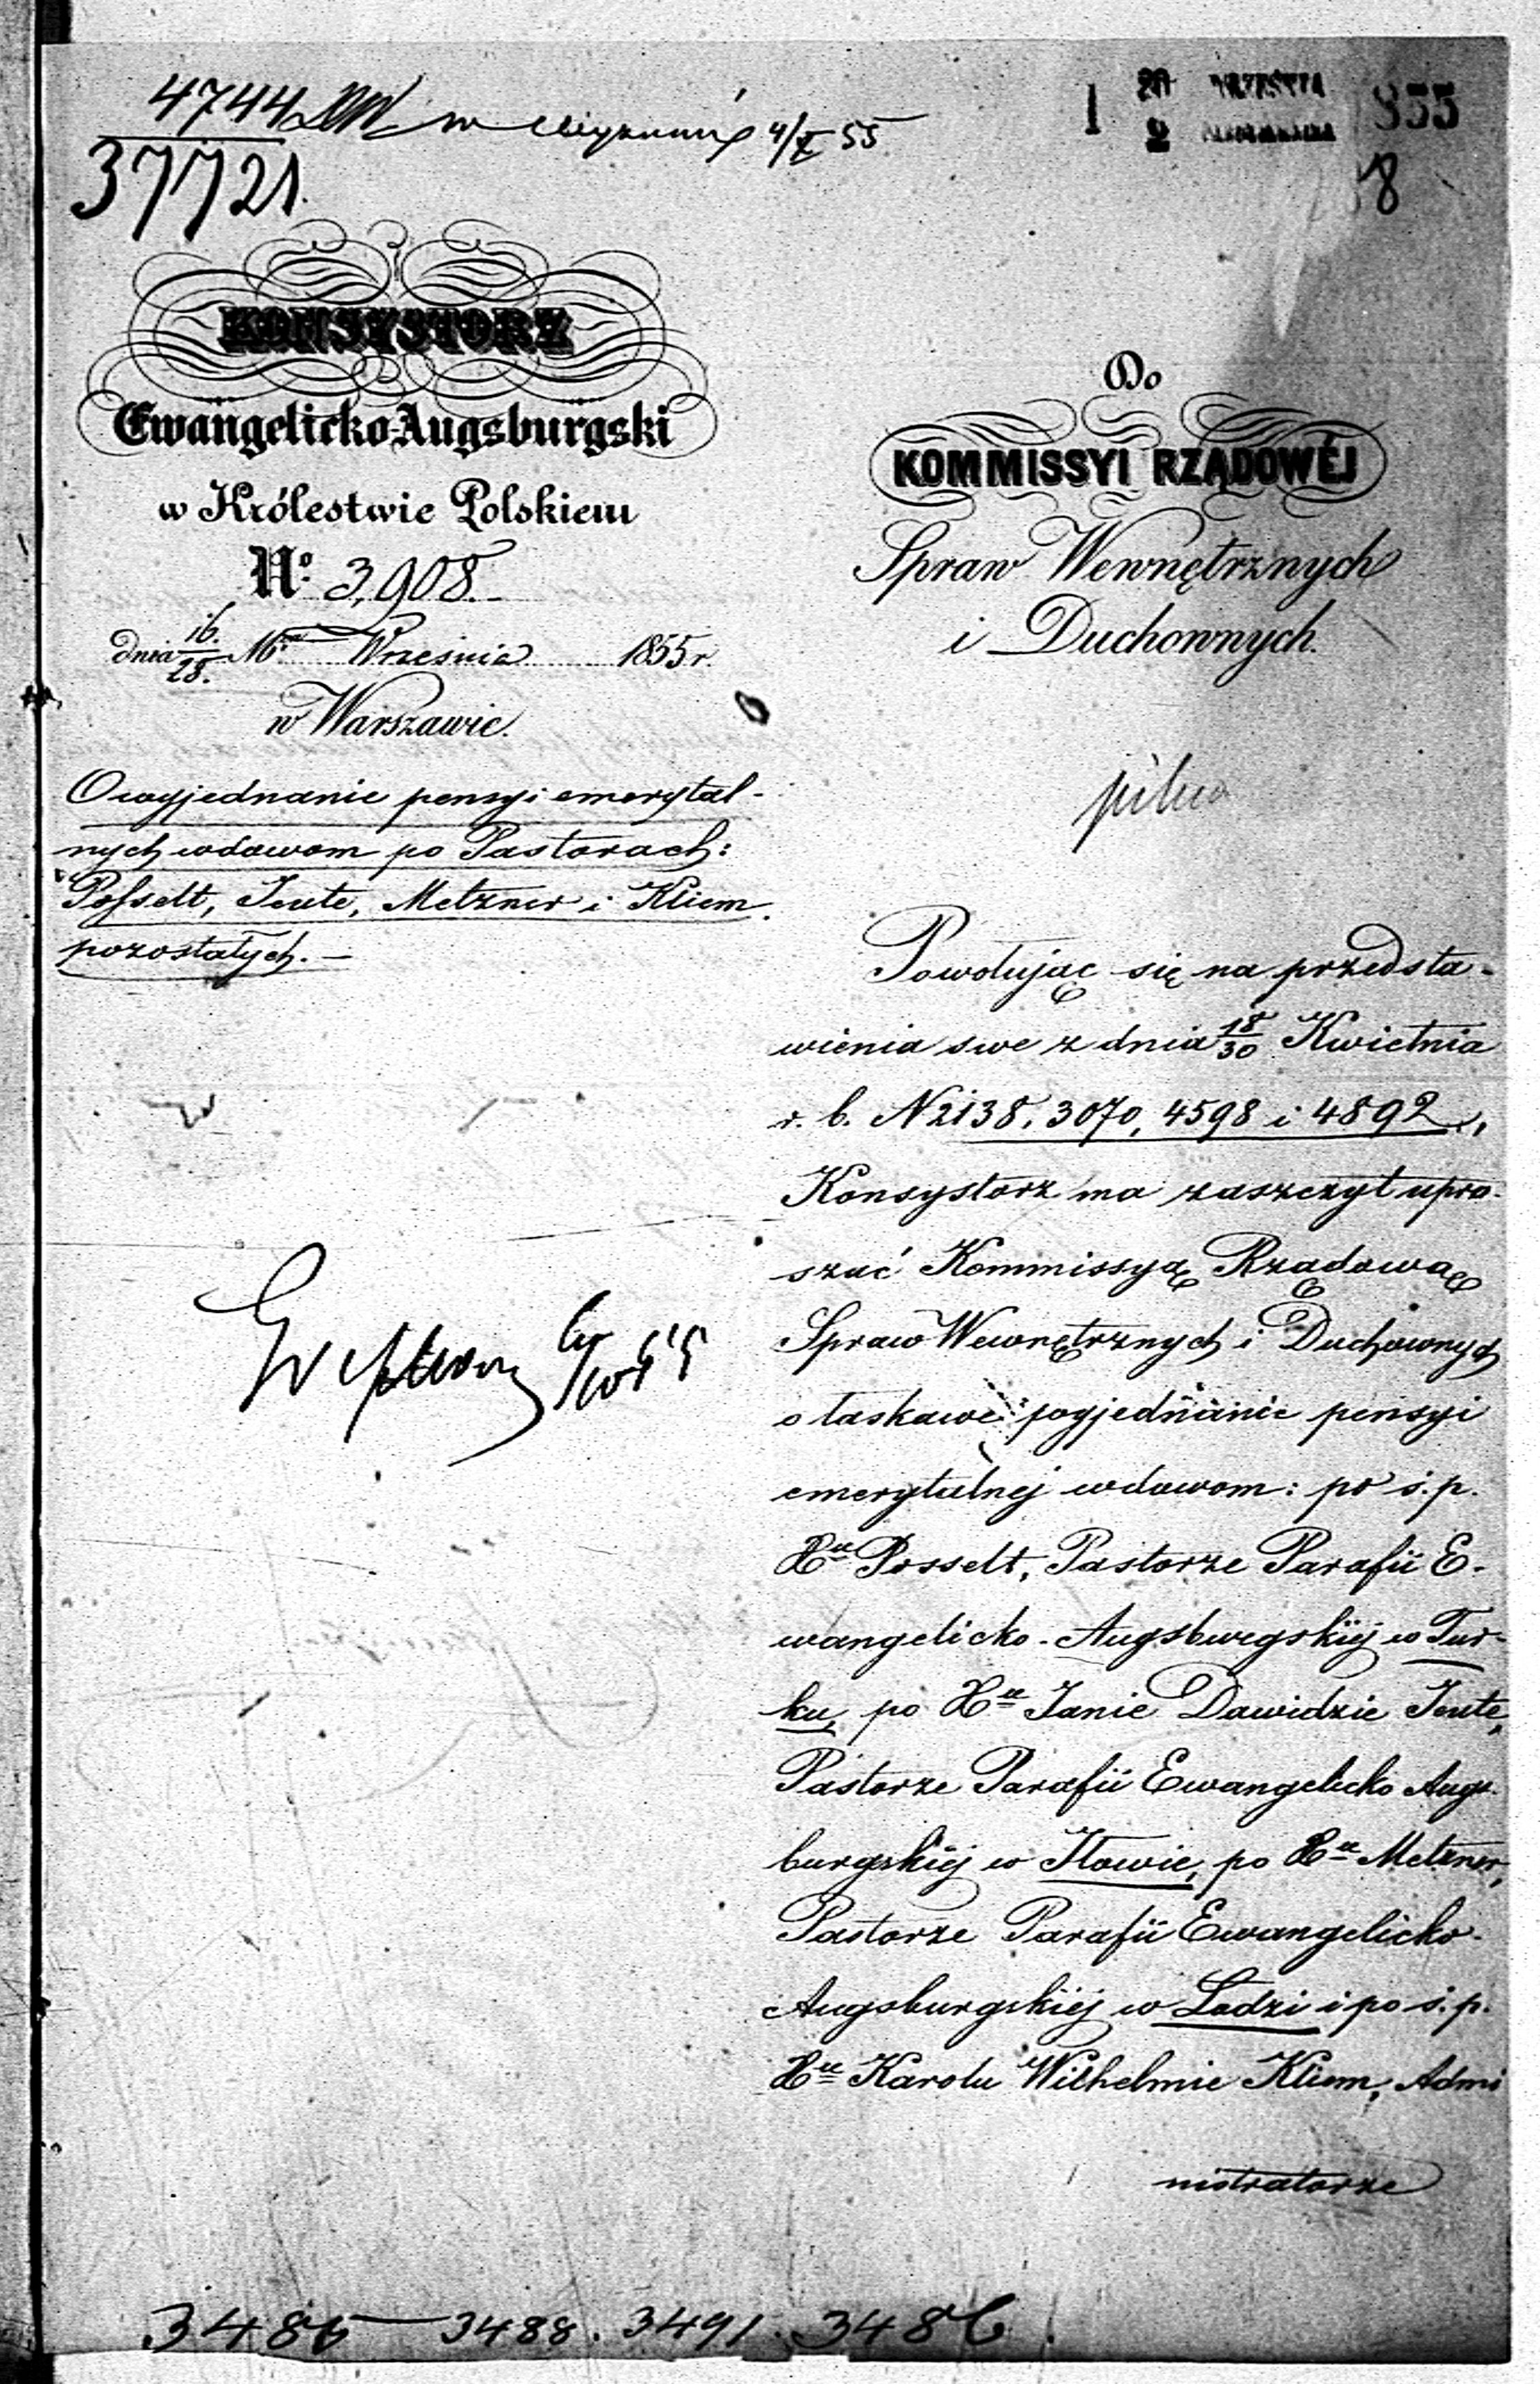 4744
37721.
w 4/X 55
1 20 WRZEŚNIA 855
2
8
KONSYSTORZ
Ewangelicko-Augsburgski
w Królestwie Polskiem
No. 3,908.
dnia 16./28. Mca Września 1855 r.
w Warszawie.
O wyjednanie pensyi emerytal-
nych wdowom po Pastorach:
Posselt, Teute, Metzner i Kliem
pozostałych. —
Do
KOMMISSYI RZĄDOWÉJ
Spraw Wewnętrznych
i Duchownych.
pilno
Powołując się na przedsta-
wienia swe z dnia 18/30 Kwietnia
r. b. N 2138, 3070, 4598 i 4892,
Konsystorz ma zaszczyt upra-
szać Kommissyą Rządową
Spraw Wewnętrznych i Duchownych
o łaskawe wyjednanie pensyi
emerytalnej wdowom: po ś. p.
Posselt, Pastorze Parafii E-
wangelicko-Augsburgskiéj w Tur-
ku, po Janie Dawidzie Teute,
Pastorze Parafii Ewangelicko Augs-
burgskiéj w Iłowie, po Metzner,
Pastorze Parafii Ewangelicko-
Augsburgskiéj w Łodzi i po ś. p.
Karolu Wilhelmie Kliem, Admi
nistratorze
3485 — 3488. 3491. 3486.